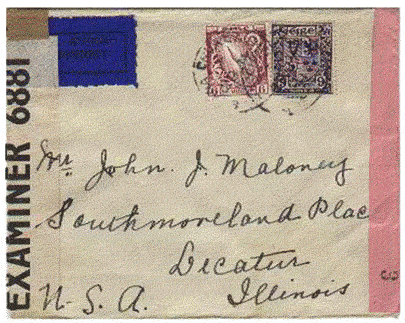 EXAMINER 6881
éire
6
9
Mr. John J. Maloney
Southmoreland Plac
Decatur
Illinois
U.S.A.